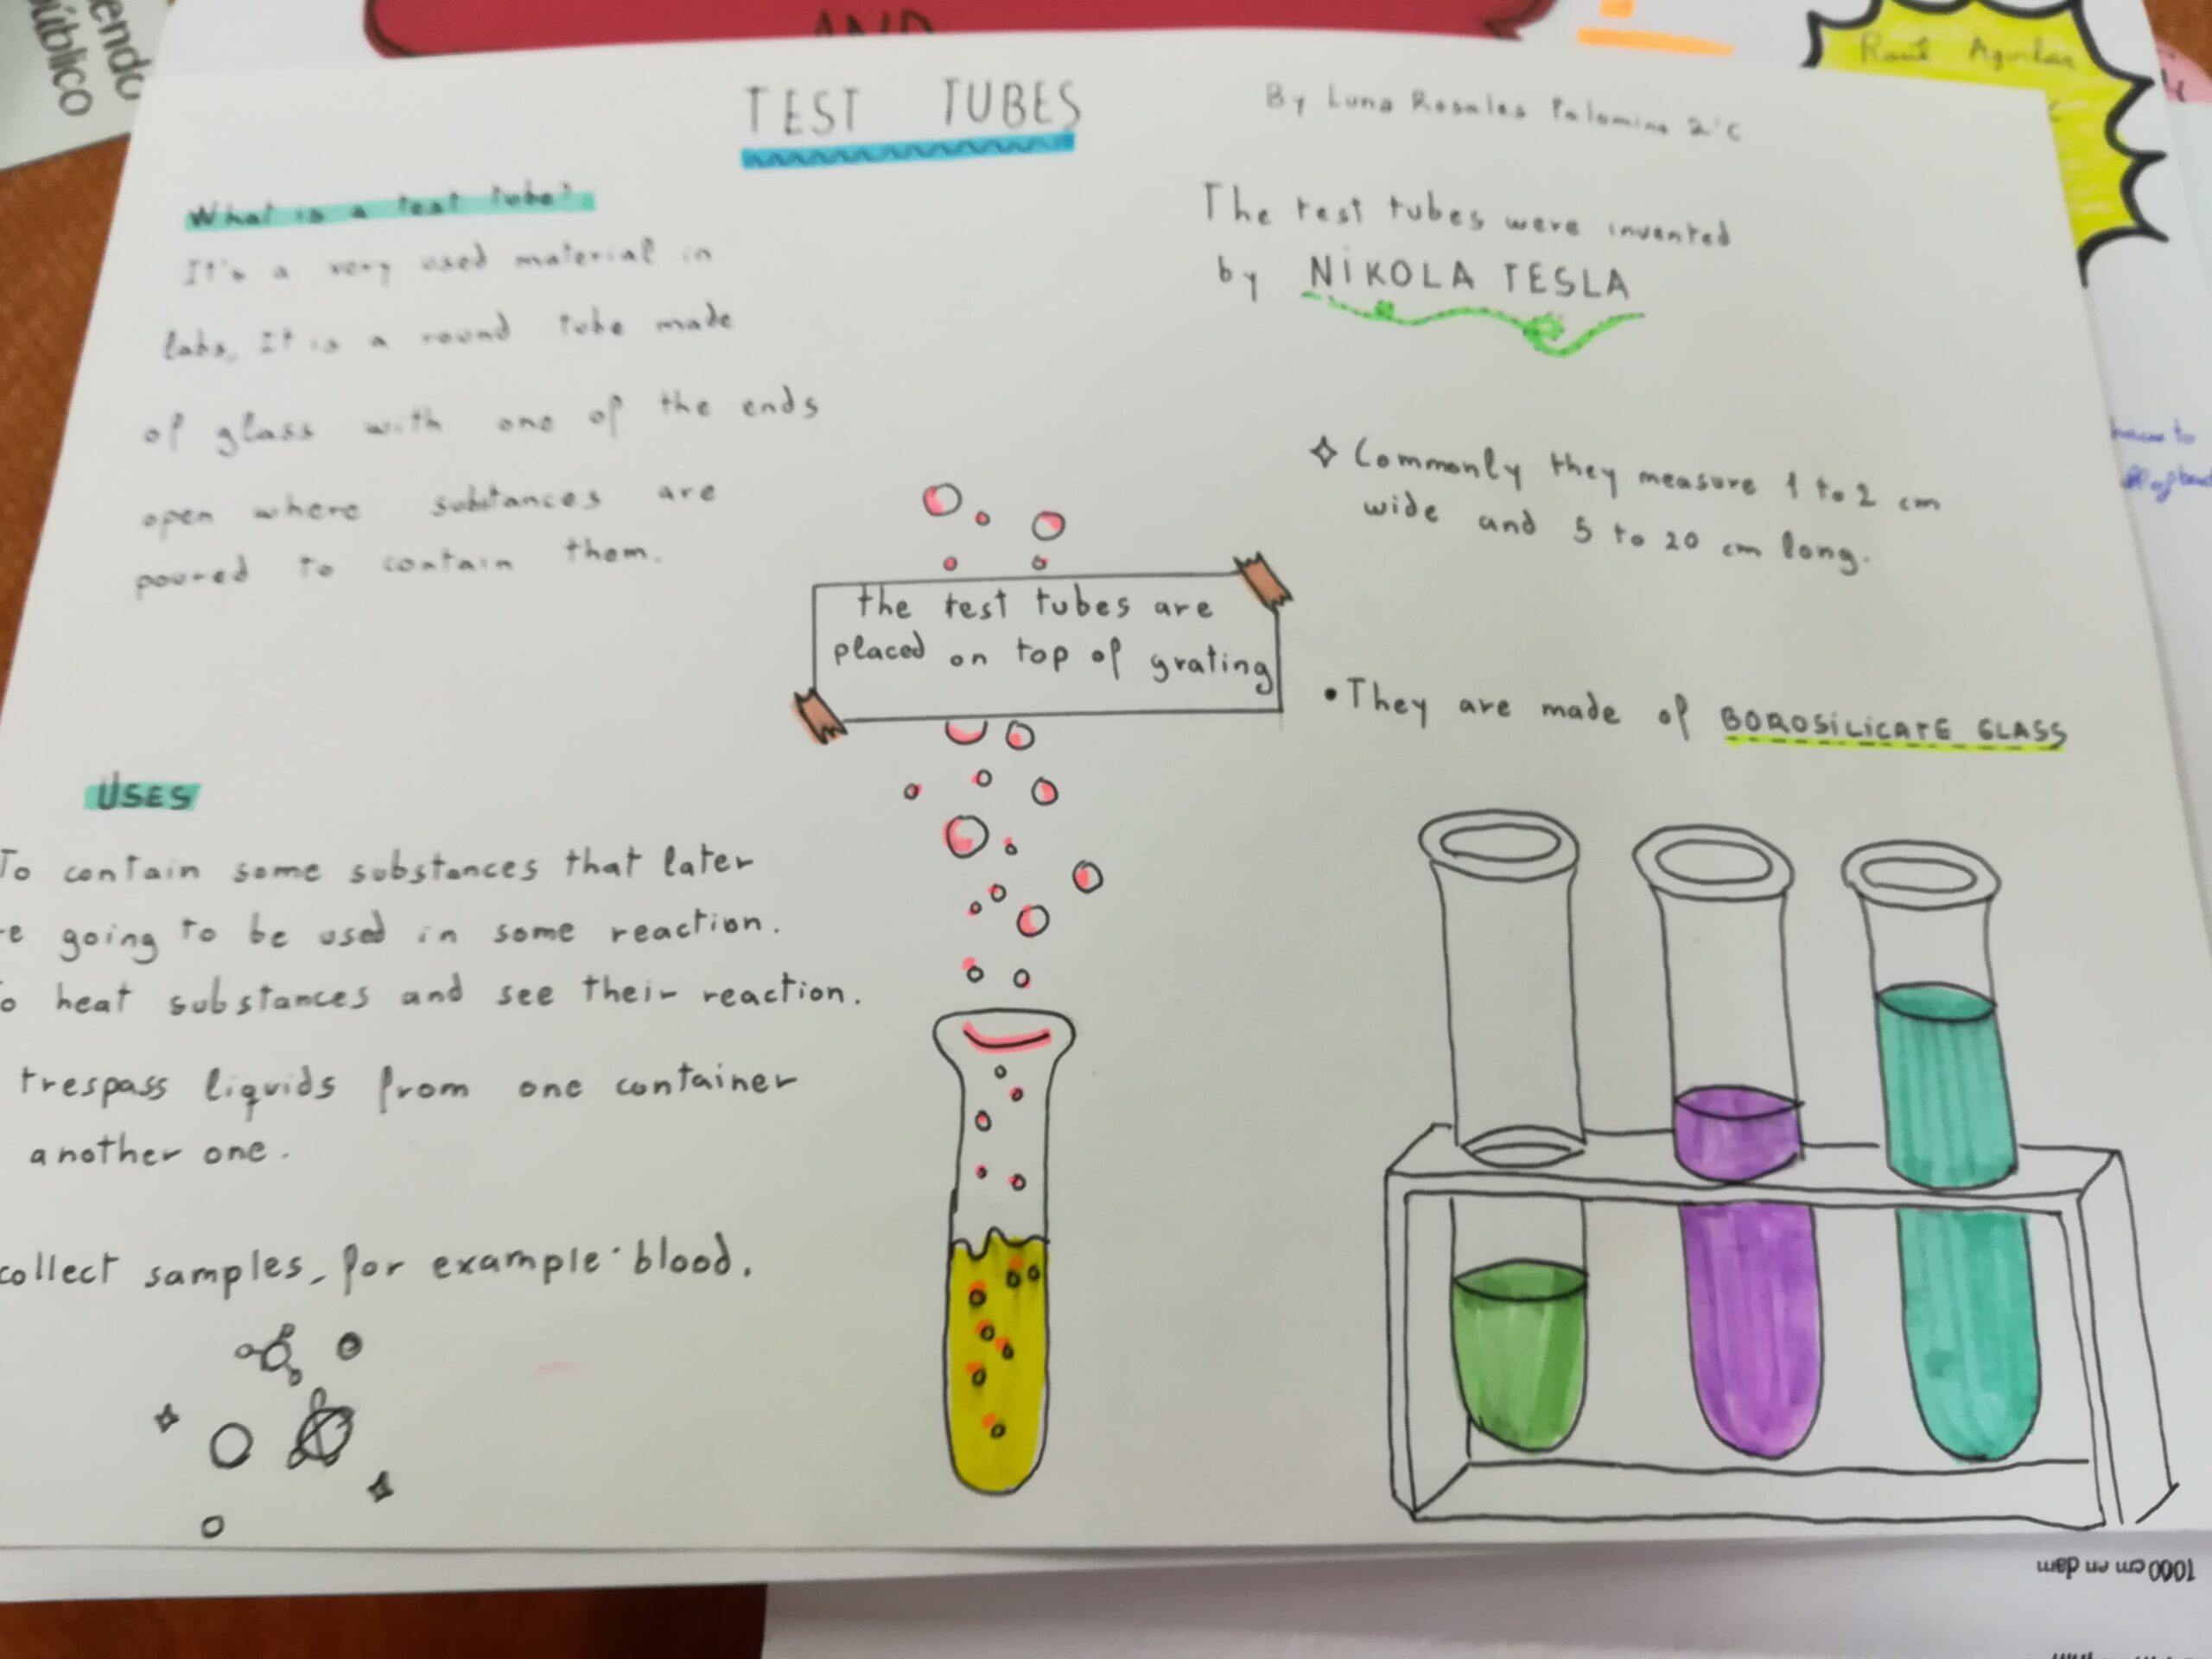 endo
público
AND
Raúl Aguilar
TEST TUBES
By Luna Rosales Palomino 2°C
What is a test tube?
It's a very used material in
labs, It is a round tube made
of glass with one of the ends
open where substances are
poured to contain them.
The test tubes were invented
by NIKOLA TESLA
Commonly they measure 1 to 2 cm
wide and 5 to 20 cm long.
the test tubes are
placed on top of grating
• They are made of BOROSILICATE GLASS
USES
To contain some substances that later
re going to be used in some reaction.
o heat substances and see their reaction.
trespass liquids from one container
another one.
collect samples, for example blood.
1000 cm en dam